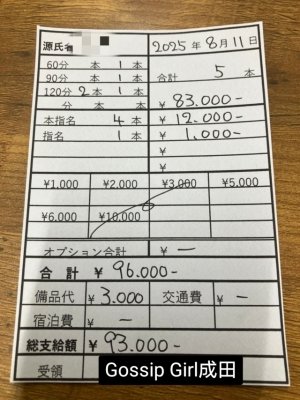 源氏名 2025年8月11日
60分 本 1本
90分 本 1本 合計 5本
120分 2本 1本
分 本 本 ¥83.000-
本指名 4本 ¥12.000-
指名 1本 ¥1.000-
¥
¥
¥1,000 ¥2,000 ¥3,000 ¥5,000
¥6,000 ¥10,000
オプション合計 ¥ー
合計 ¥96.000-
備品代 ¥3.000 交通費 ¥ー
宿泊費 ¥ー
総支給額 ¥93.000-
受領
Gossip Girl成田